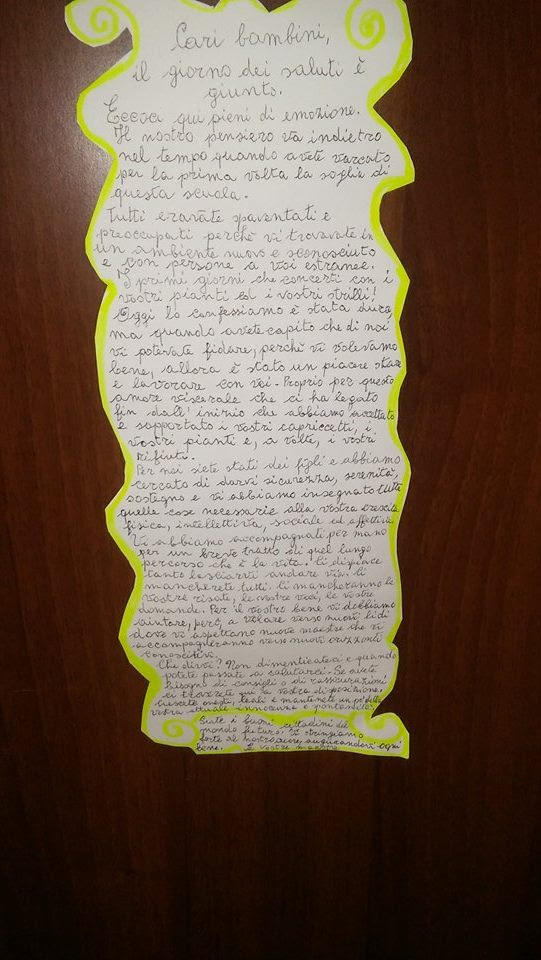 Cari bambini,
il giorno dei saluti è
giunto.
Eccoci qui pieni di emozione.
Il nostro pensiero va indietro
nel tempo quando avete varcato
per la prima volta la soglia di
questa scuola.
Tutti eravate spaventati e
preoccupati perchè vi trovavate in
un ambiente nuovo e sconosciuto
e con persone a voi estranee.
I primi giorni che concerti con i
vostri pianti ed i vostri strilli!
Oggi lo confessiamo è stata dura,
ma quando avete capito che di noi
vi potevate fidare, perchè vi volevamo
bene, allora è stato un piacere stare
e lavorare con voi. Proprio per questo
amore viscerale che ci ha legato
fin dall'inizio che abbiamo accettato
e sopportato i vostri capriccetti, i
vostri pianti e, a volte, i vostri
rifiuti.
Per noi siete stati dei figli e abbiamo
cercato di darvi sicurezza, serenità,
sostegno e vi abbiamo insegnato tutte
quelle cose necessarie alla vostra crescita
fisica, intellettiva, sociale ed affettiva.
Vi abbiamo accompagnati per mano
per un breve tratto di quel lungo
percorso che è la vita. Ci dispiace
tanto lasciarvi andare via. Ci
mancherete tutti. Ci mancheranno le
vostre risate, le vostre voci, le vostre
domande. Per il vostro bene vi dobbiamo
aiutare, però, a volare verso nuovi lidi
dove vi aspettano nuove maestre che vi
accompagneranno verso nuovi orizzonti
conoscitivi.
Che dirvi? Non dimenticateci e quando
potete passate a salutarci. Se avete
bisogno di consigli o di rassicurazioni
ci troverete qui a vostra disposizione.
Crescete onesti, leali e mantenete un po' della
vostra attuale innocenza e spontaneità.
Siate i buoni cittadini del
mondo futuro. Vi stringiamo
forte al nostro cuore, augurandovi ogni
bene. Le vostre maestre